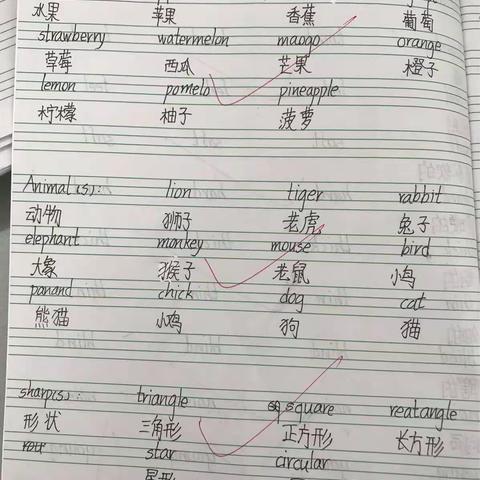 水果 苹果 香蕉 葡萄
strawberry watermelon maogo orange
草莓 西瓜 芒果 橙子
lemon pomelo pineapple
柠檬 柚子 菠萝
Animal(s): lion tiger rabbit
动物 狮子 老虎 兔子
elephant monkey mouse bird
大象 猴子 老鼠 小鸟
panand chick dog cat
熊猫 小鸡 狗 猫
sharp(s): triangle square reatangle
形状 三角形 正方形 长方形
star circular
星形